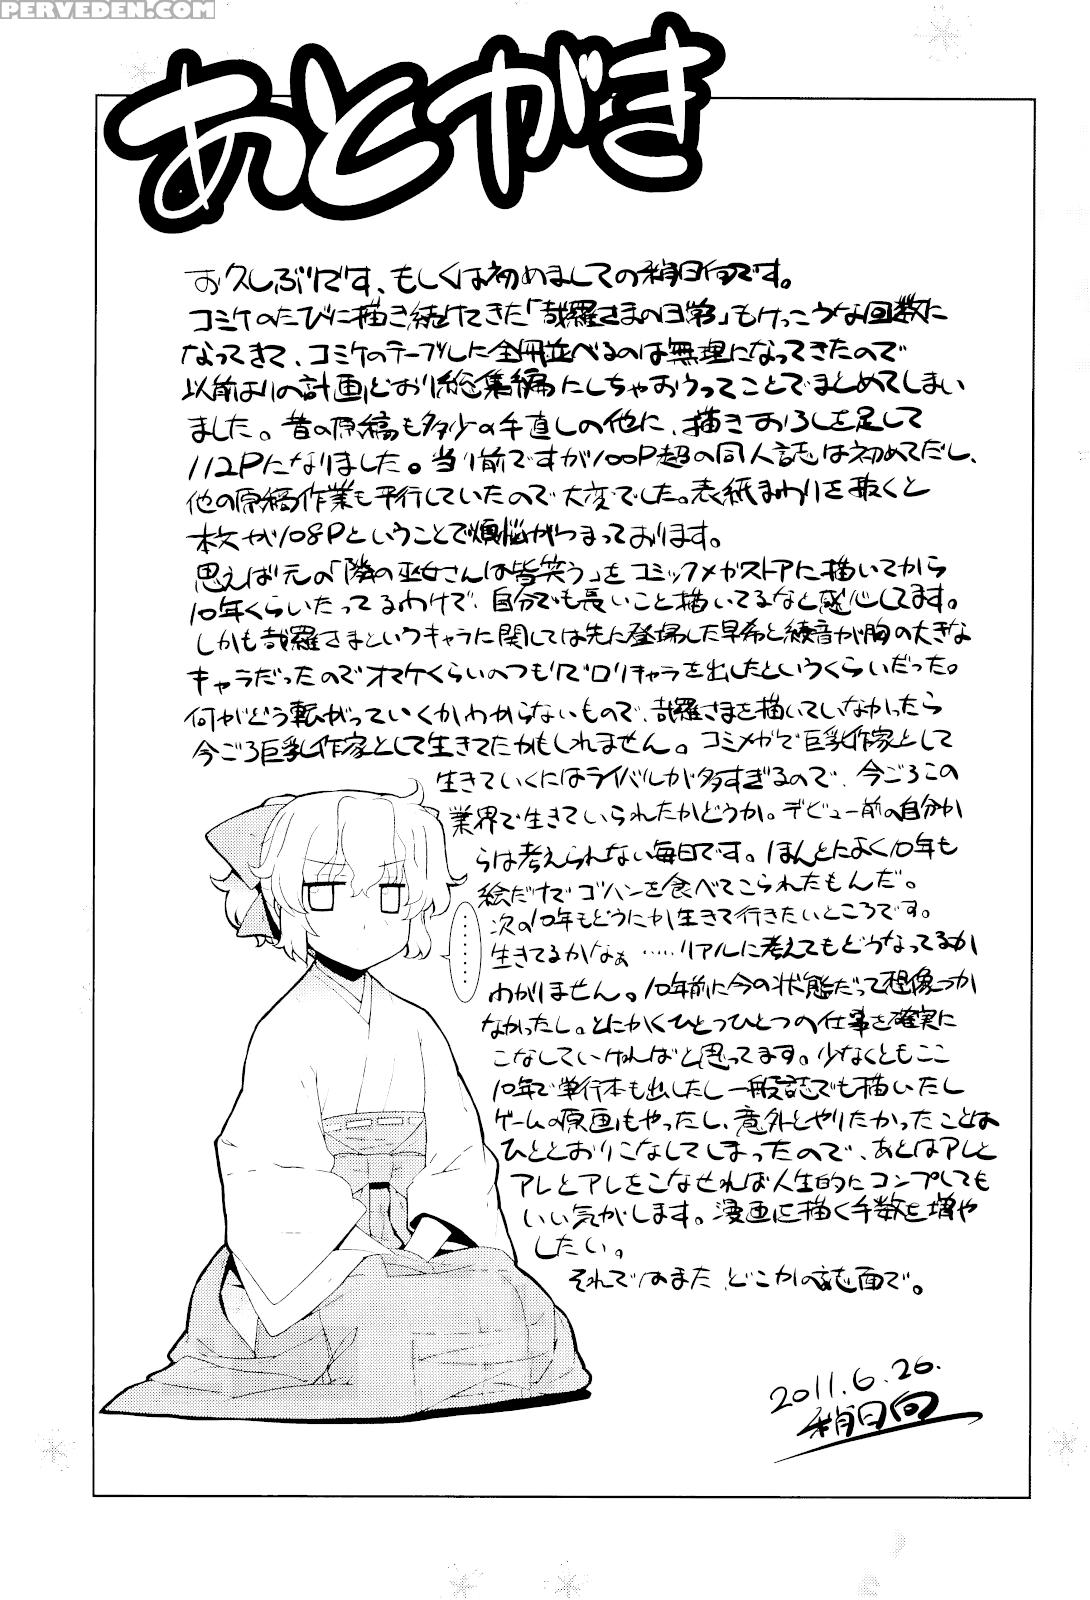 PERVEDEN.COM
あとがき
お久しぶりです、もしくは初めましての稍日向です。
コミケのたびに描き続けてきた「哉羅さまの日常」もけっこうな回数に
なってきて、コミケのテーブルに全冊並べるのは無理になってきたので
以前よりの計画どおり総集編にしちゃおうってことでまとめてしまい
ました。昔の原稿も多少の手直しの他に、描きおろしを足して
112Pになりました。当り前ですが100P超の同人誌は初めてだし、
他の原稿作業も平行していたので大変でした。表紙まわりを抜くと
本文が108Pということで煩悩がつまっております。
思えば元の「隣の巫女さんは皆笑う」をコミックメガストアに描いてから
10年くらいたってるわけで、自分でも長いこと描いてるなと感心してます。
しかも哉羅さまというキャラに関しては先に登場した早希と綾音が胸の大きな
キャラだったのでオマケくらいのつもりでロリキャラを出したというくらいだった。
何がどう転がっていくかわからないもので、哉羅さまを描いていなかったら
今ごろ巨乳作家として生きてたかもしれません。コミメガで巨乳作家として
生きていくにはライバルが多すぎるので、今ごろこの
業界で生きていられたかどうか。デビュー前の自分か
らは考えられない毎日です。ほんとによく10年も
絵だけでゴハンを食べてこられたもんだ。
次の10年もどうにか生きて行きたいところです。
生きてるかなぁ……リアルに考えてもどうなってるか
わかりません。10年前に今の状態だって想像つか
なかったし。とにかくひとつひとつの仕事を確実に
こなしていければと思ってます。少なくともここ
10年で単行本も出したし一般誌でも描いたし
ゲームの原画もやったし、意外とやりたかったことは
ひととおりこなしてしまったので、あとはアレと
アレとアレをこなせれば人生的にコンプしても
いい気がします。漫画に描く手数を増や
したい。
それではまた、どこかの誌面で。
………
2011.6.26.
稍日向